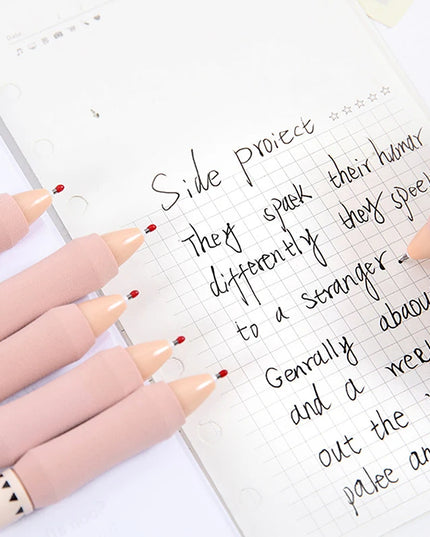 Date
Side proiect
They spaek their humar
differently they speel
to a stranger
Genrally abaou
and a week
out the
palee an